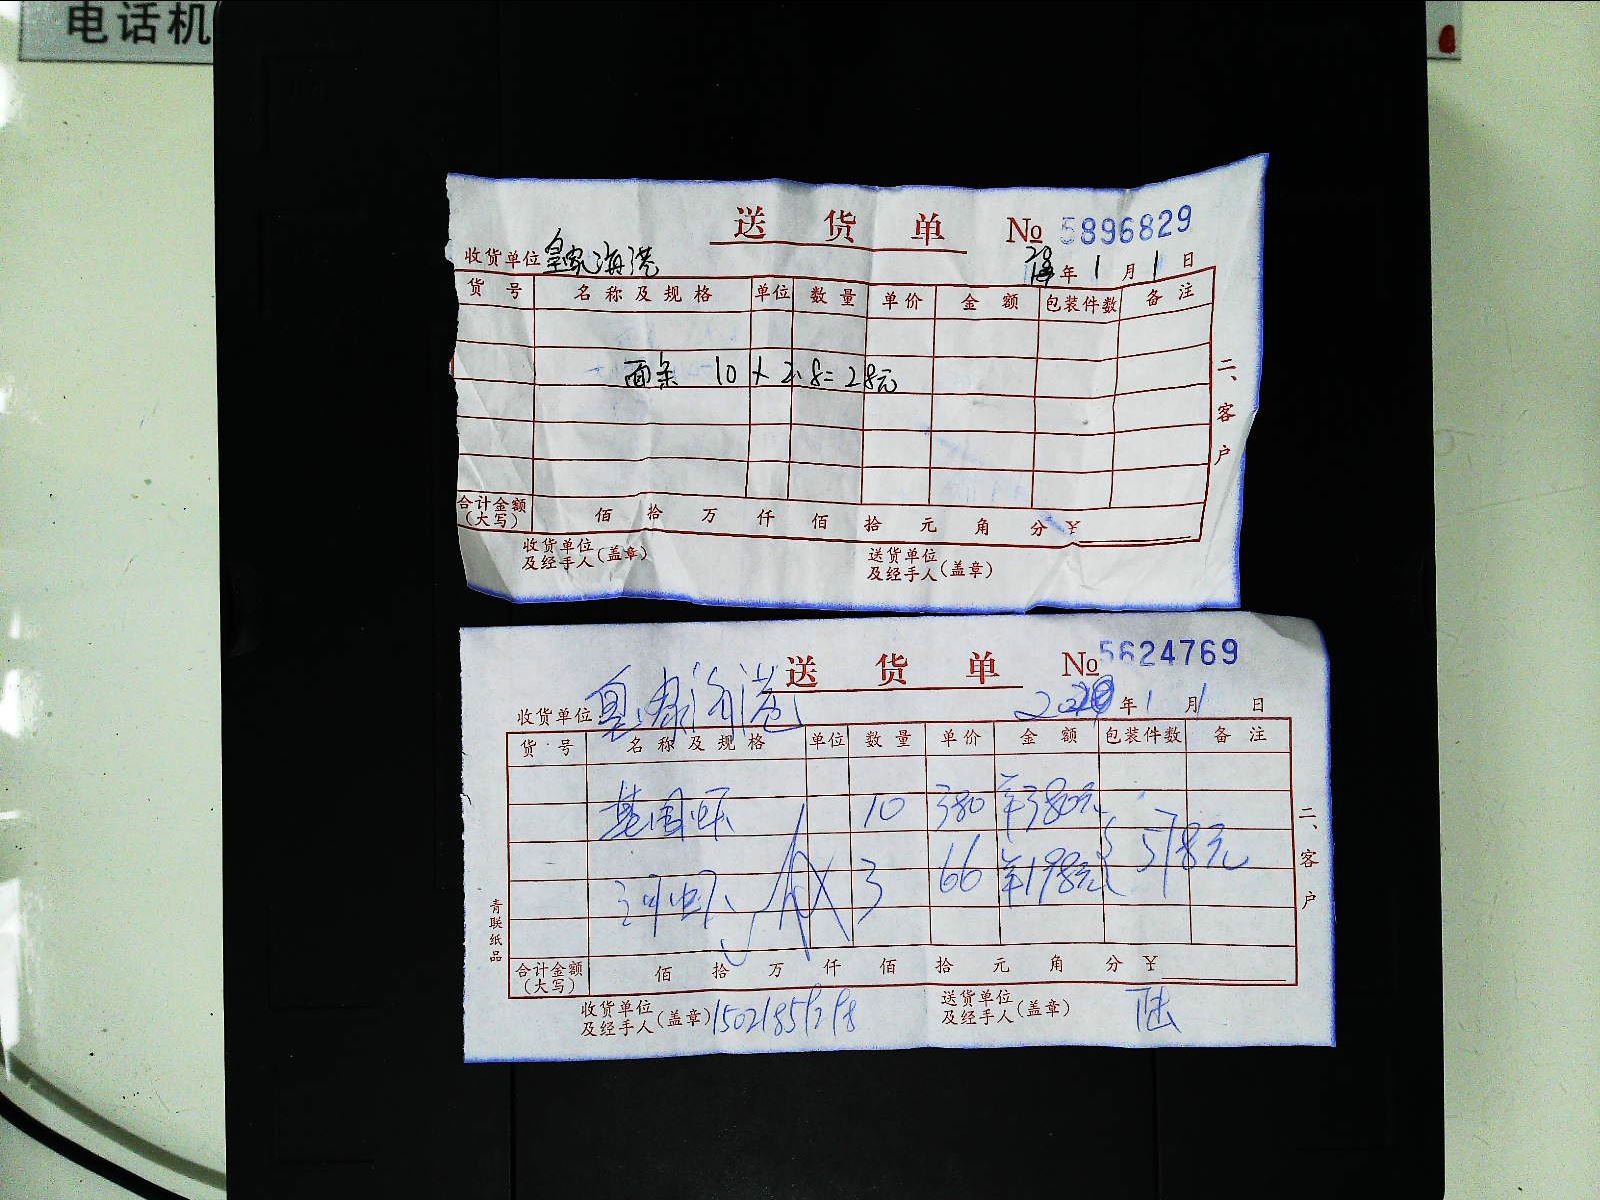 电话机
送货单 № 5896829
收货单位 皇家海港 年 1 月 1 日
货号 名称及规格 单位 数量 单价 金额 包装件数 备注
面条 10 × 2.8 = 28元
合计金额(大写) 佰 拾 万 仟 佰 拾 元 角 分 ¥
收货单位及经手人(盖章) 送货单位及经手人(盖章)
二、客户
送货单 № 5624769
收货单位 皇家海港 2020 年 1 月 1 日
货号 名称及规格 单位 数量 单价 金额 包装件数 备注
基围虾 10 380 羊380元
河虾 3 66 羊198元 578元
合计金额(大写) 佰 拾 万 仟 佰 拾 元 角 分 ¥
收货单位及经手人(盖章) 送货单位及经手人(盖章)
二、客户
青联纸品